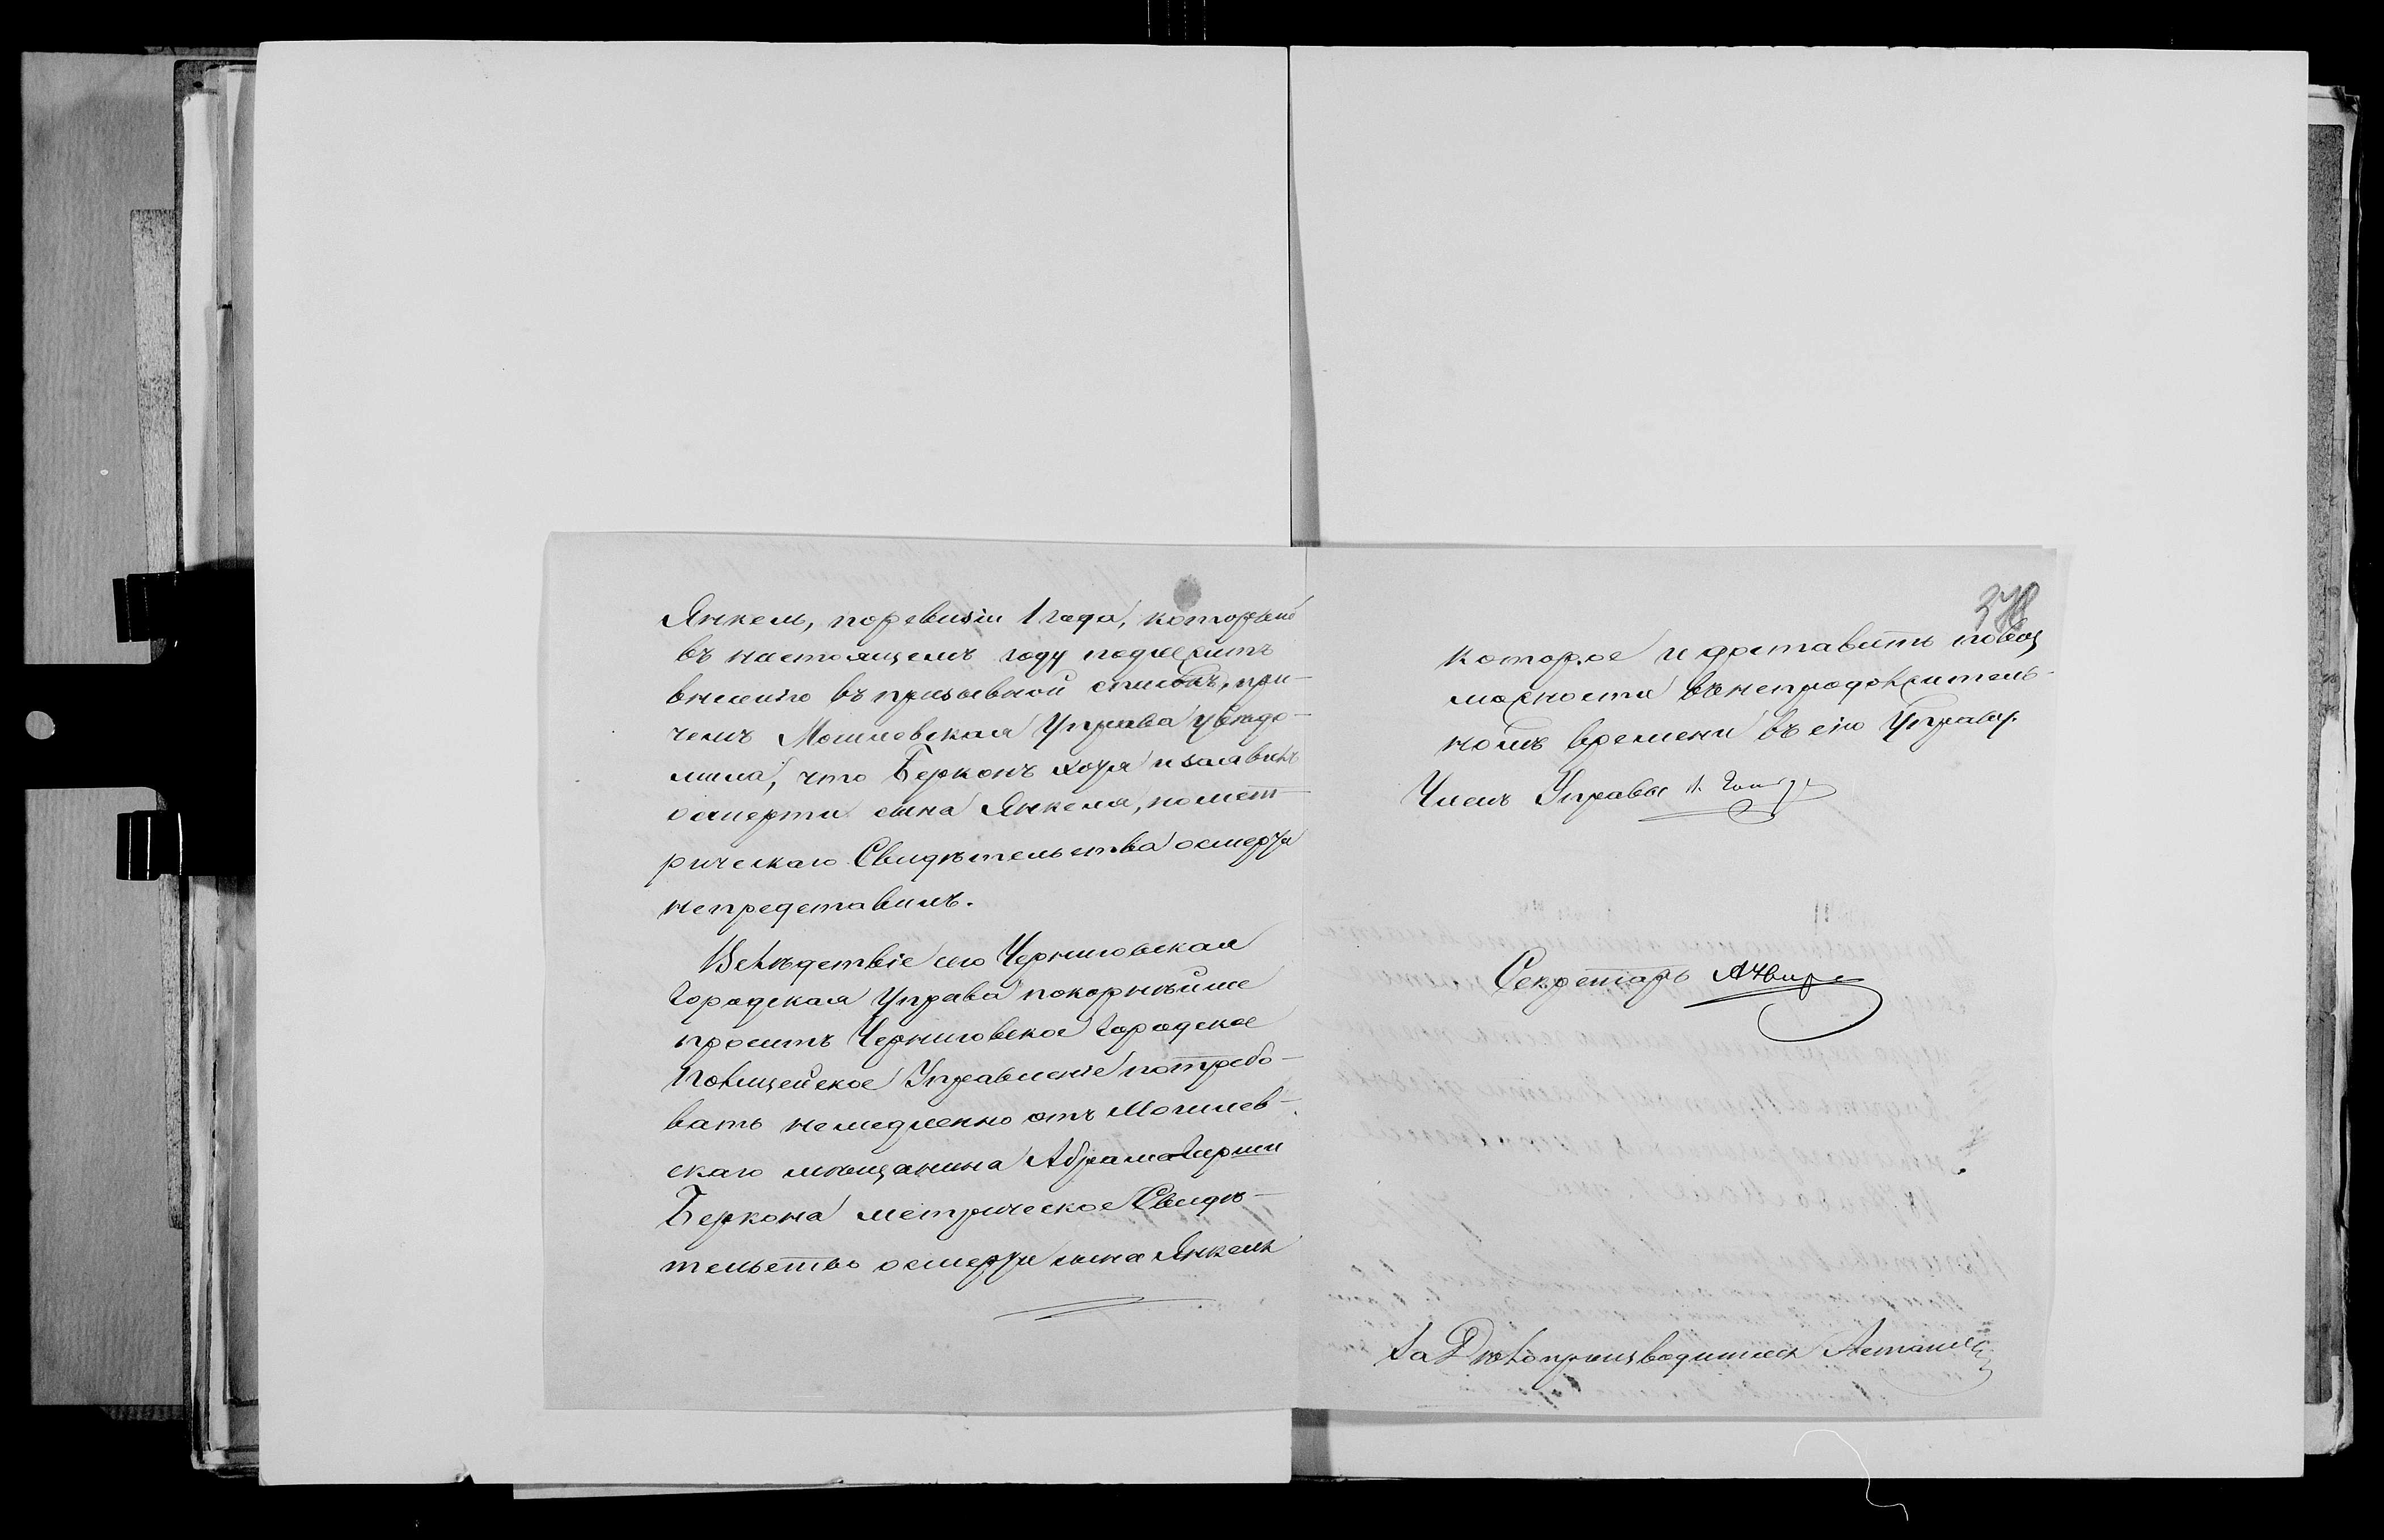 Янкель, поревизіи 1 года, который
въ настоящемъ году подлежитъ
внесенію въ призывной списокъ, при-
чемъ Могилевская Управа увѣдо-
мила, что Берконъ хотя и заявилъ
осмерти сына Янкеля, но мет-
рическаго Свидѣтельства осмерти
непредставилъ.
Вслѣдствіе сего Черниговская
Городская Управа покорнѣйше
проситъ Черниговское Городское
Полицейское Управленіе потребо-
вать немедленно отъ Могилев-
скаго мѣщанина Абрама Гирши
Беркона метрическое Свидѣ-
тельство осмерти сына Янкеля
378
которое и доставить повоз
можности внепродолжитель-
номъ времени въ сію Управу.
Членъ Управы
Секретарь
За Дѣлопроизводителя